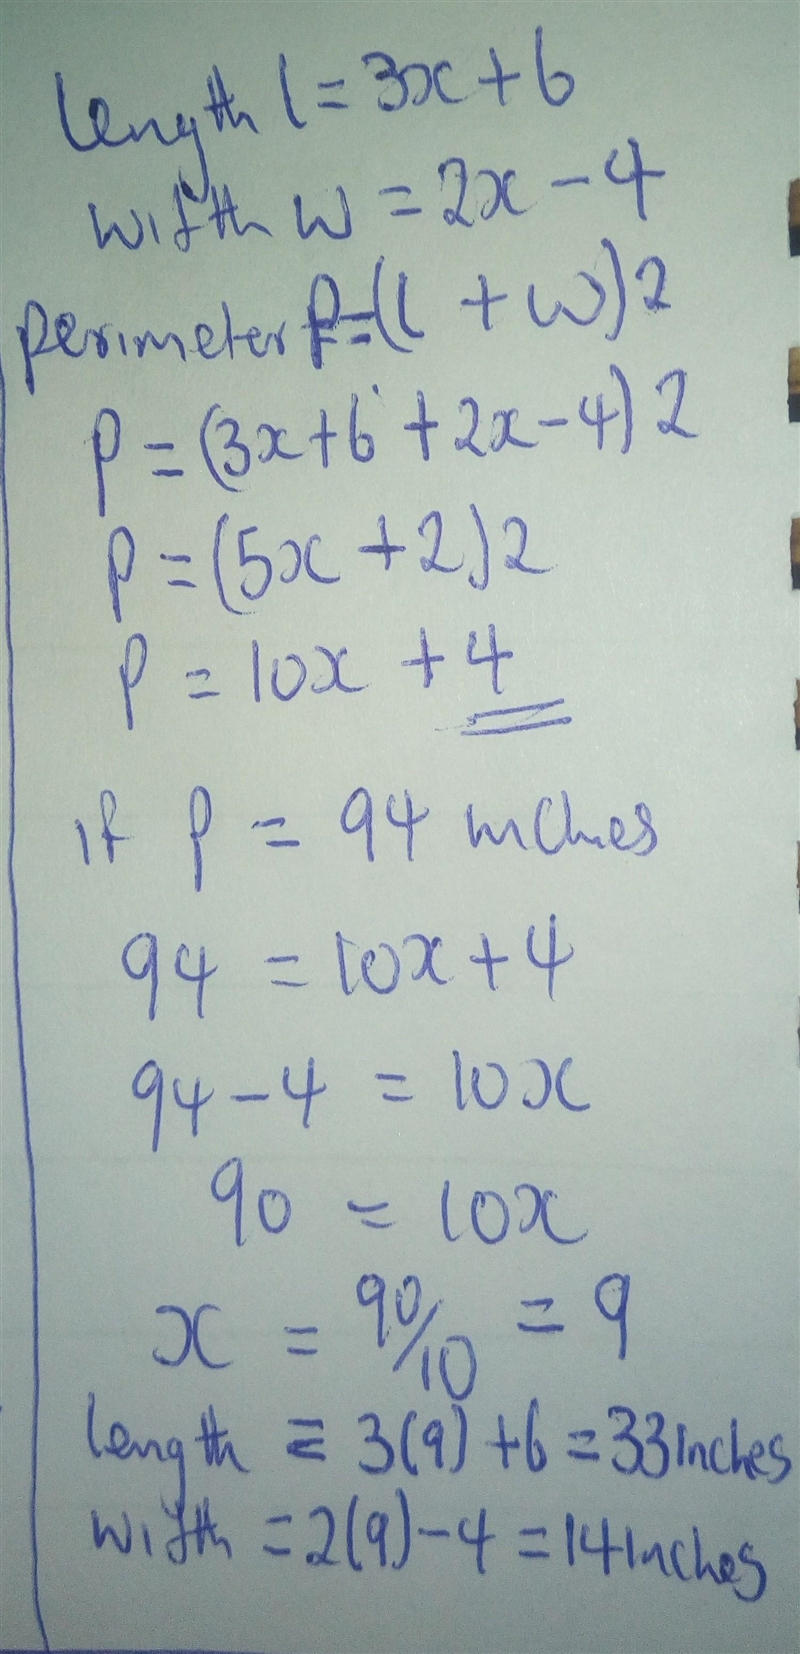 length l = 3x + 6
width w = 2x - 4
perimeter P = (l + w) 2
P = (3x + 6 + 2x - 4) 2
P = (5x + 2) 2
P = 10x + 4
if P = 94 inches
94 = 10x + 4
94 - 4 = 10x
90 = 10x
x = 90/10 = 9
length = 3(9) + 6 = 33 inches
width = 2(9) - 4 = 14 inches